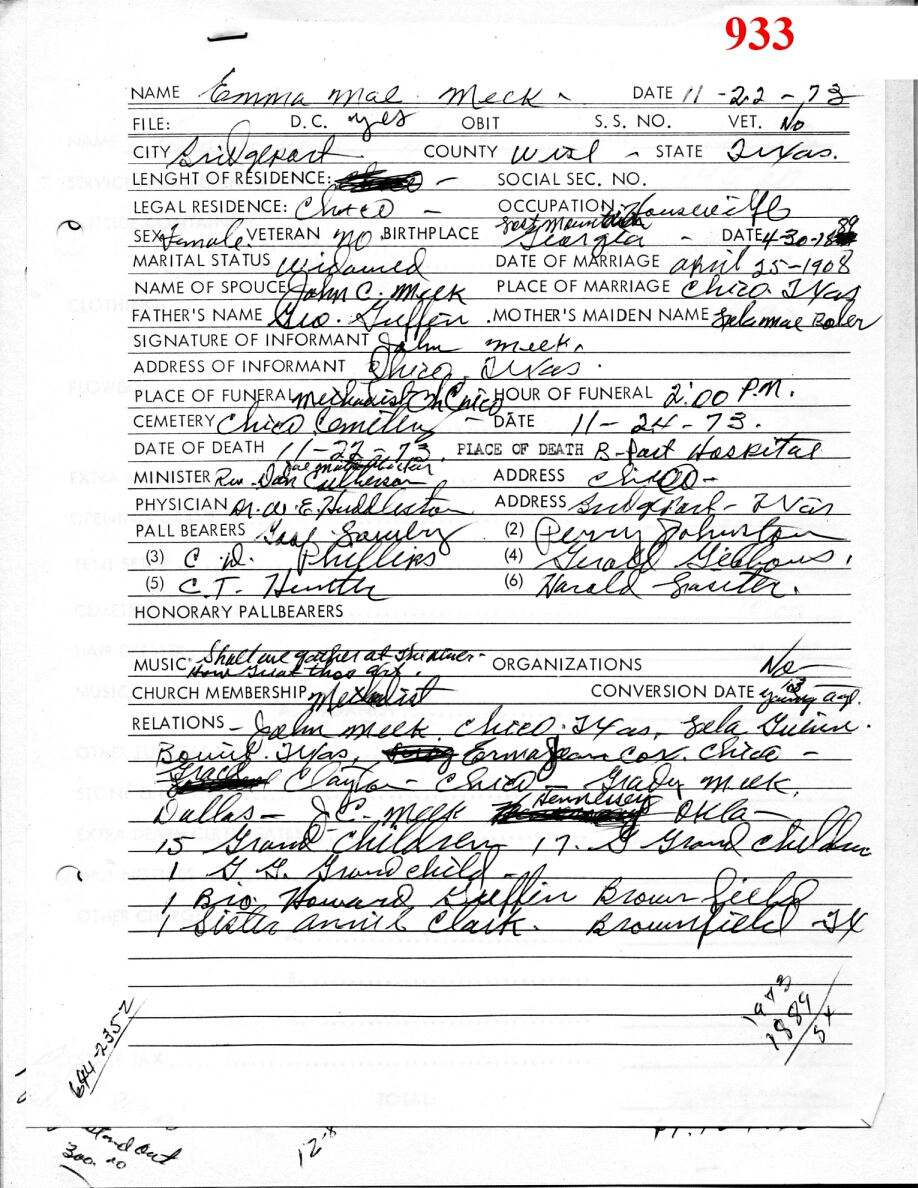 933
NAME Emma Mae Meek DATE 11-22-73
FILE: D.C. yes OBIT S.S. NO. VET. No
CITY Bridgeport COUNTY Wise STATE Texas.
LENGHT OF RESIDENCE: SOCIAL SEC. NO.
LEGAL RESIDENCE: Chico OCCUPATION Housewife
SEX Female VETERAN NO BIRTHPLACE Georgia DATE 4-30-1889
MARITAL STATUS Widowed DATE OF MARRIAGE april 25-1908
NAME OF SPOUCE John C. Meek PLACE OF MARRIAGE Chico Texas
FATHER'S NAME Geo. Griffin MOTHER'S MAIDEN NAME
SIGNATURE OF INFORMANT John Meek.
ADDRESS OF INFORMANT Chico, Texas.
PLACE OF FUNERAL Methodist Ch Chico HOUR OF FUNERAL 2:00 P.M.
CEMETERY Chico Cemetery DATE 11-24-73.
DATE OF DEATH 11-22-73. PLACE OF DEATH B-port Hospital
MINISTER Rev. Dan Culberson ADDRESS Chico
PHYSICIAN Dr. W. E. Huddleston ADDRESS Bridgeport-Texas
PALL BEARERS (2) Perry Johnston
(3) C. W. Phillips (4) Gerald Gibbons.
(5) C.T. Hunter (6) Harold Lasiter.
HONORARY PALLBEARERS
MUSIC: Shall we gather at The River-
How Great thou art.
ORGANIZATIONS No
CHURCH MEMBERSHIP Methodist CONVERSION DATE young age.
RELATIONS - John Meek. Chico. Texas, Lela
Bowie. Texas, Erma Jean Cox. Chico -
Grace Clayton - Chico - Grady Meek.
Dallas - J.C. Meek Hennessey OKla-
15 Grand Children 17. G Grand Children
1 G. G. Grand child -
1 Bro. Howard Griffin Brownfield
1 Sister annie Clark. Brownfield TX
1973
1889
84
644-2352
stand out
300.00
12
TOTAL: